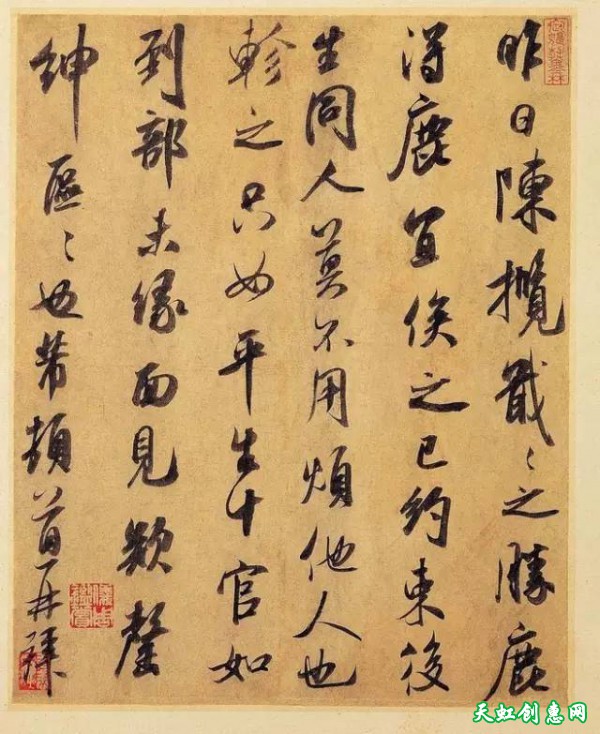 昨日陳攬戢〻之勝鹿
得鹿宜俟之已約束後
生同人莫不用煩他人也
軫之只如平生十官如
到部未緣面見欵罄
紳區〻也芾頓首再拜
天虹创惠网